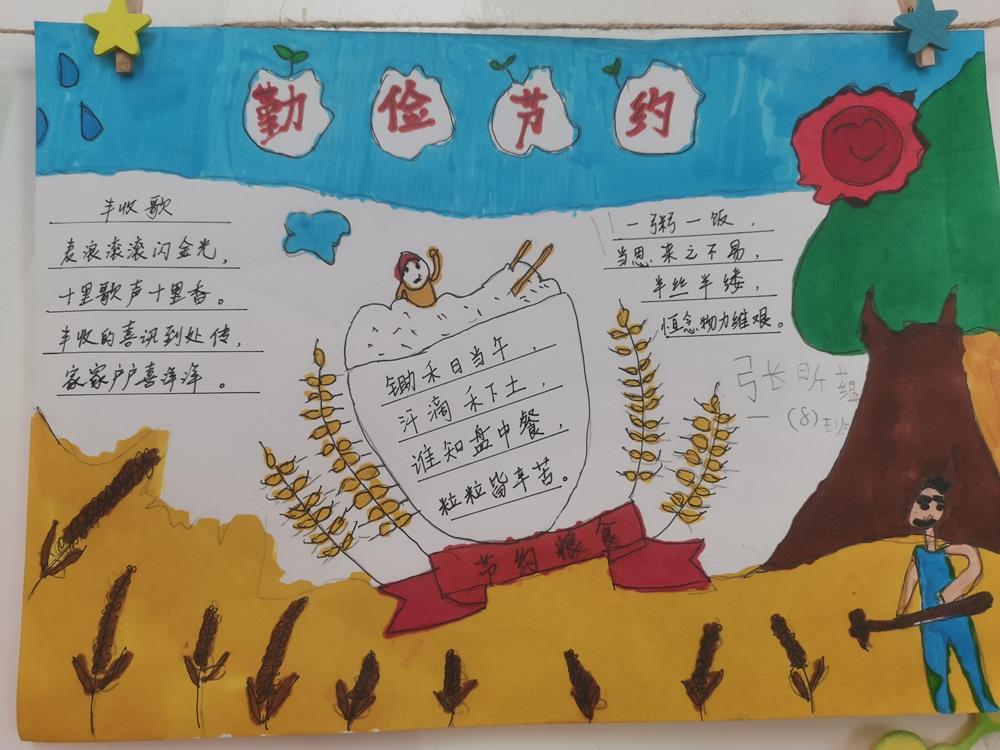 勤俭节约
丰收歌
麦浪滚滚闪金光，
十里歌声十里香。
丰收的喜讯到处传，
家家户户喜洋洋。
一粥一饭，
当思来之不易，
半丝半缕，
恒念物力维艰。
张昕蕴
一（8）班
锄禾日当午，
汗滴禾下土，
谁知盘中餐，
粒粒皆辛苦。
节约粮食